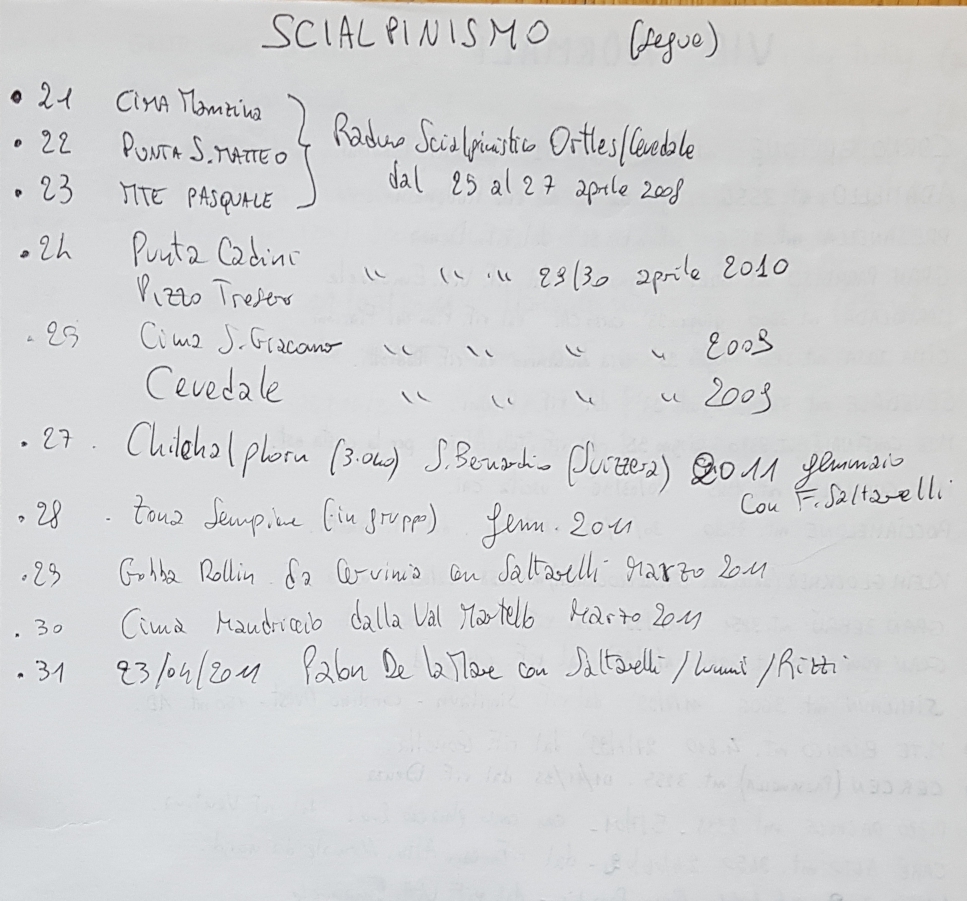 SCIALPINISMO (segue)
• 21 CIMA Manzina
• 22 PUNTA S. MATTEO } Raduno Scialpinistico Ortles/Cevedale
• 23 MTE PASQUALE dal 25 al 27 aprile 2008
• 24 Punta Cadini
Pizzo Tresero " " " 29/30 aprile 2010
• 25 Cima S. Giacomo " " " " 2009
Cevedale " " " " 2009
• 27. Chilchalphorn (3.040) S. Bernardino (Svizzera) 2011 gennaio
con F. Saltarelli
• 28 - Zona Sempione (in gruppo) genn. 2011
• 29 Gobba Rollin da Cervinia con Saltarelli Marzo 2011
• 30 Cima Madriccio dalla Val Martello Marzo 2011
• 31 23/04/2011 Palon De La Mare con Saltarelli / / Rizzi